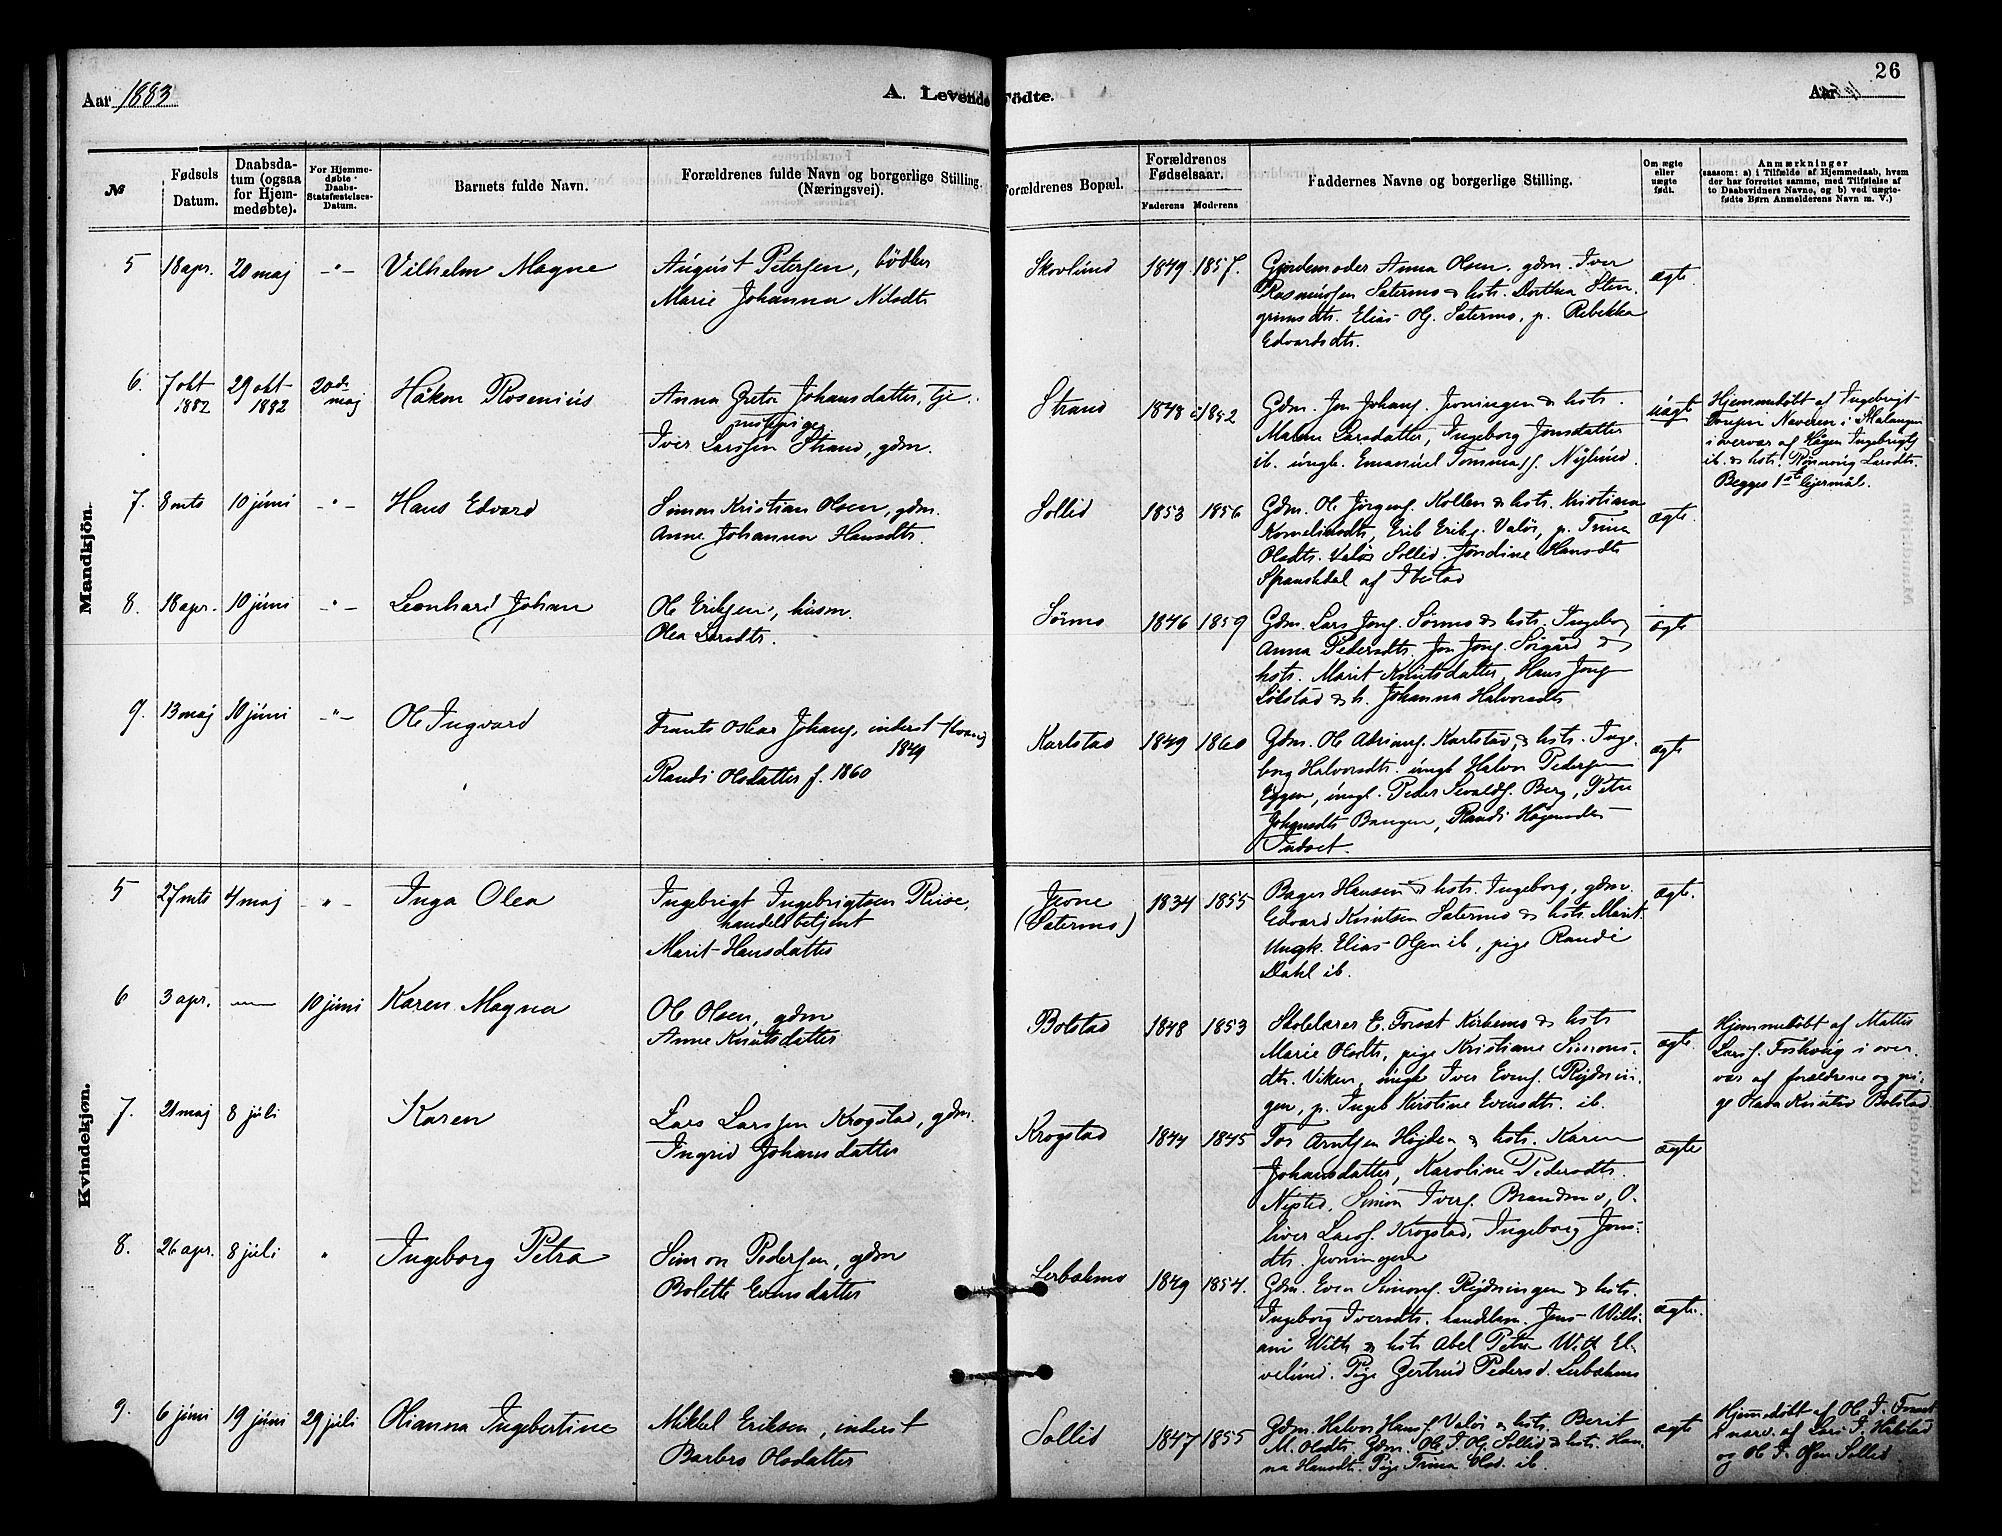 26
Aar 1883
A. Levende Födte.
Aar
№
Fødsels Datum.
Daabsdatum (ogsaa for Hjemmedøbte).
For Hjemmedøbte Daabs-Statsfæstelses-Datum.
Barnets fulde Navn.
Forældrenes fulde Navn og borgerlige Stilling. (Næringsvei).
Forældrenes Bopæl.
Forældrenes Fødselsaar.
Faderens Moderens
Faddernes Navne og borgerlige Stilling.
Om ægte eller uægte født.
Anmærkninger
(saasom: a) i Tilfælde af Hjemmedaab, hvem
der har forrettet samme, med Tilføielse af
to Daabsvidners Navne, og b) ved uægte-
fødte Børn Anmelderens Navn m. V.)
Mandkjön.
5 18 apr. 20 maj -"- Vilhelm Magne
August Petersen, bødker
Marie Johanna Nilsdts
Skovlund 1849 1857.
Gjordemoder Anna Olsen. gdm. Iver
Rasmussen Sætermo & hst. Dorthea Sten-
grimsdts. Elias Ols. Sætermo, p. Rebekka
Edvardsdts.
ægte.
6. 7 okt 1882 29 okt 1882 20de maj Håkon Rosenius
Anna Greta Johansdatter, tje-
nestepige
Iver Larssen Strand, gdm.
Strand 1848 1852
Gdm. Jon Johans. Jevningen & hst.
Malene Larsdatter, Ingeborg Jonsdatter
ib. ungk. Emanuel Tommass. Nylund.
uægte
Hjemmedøbt af Ingebrigt
Toresen Naveren i Malangen
i overvær af Hågen Ingebrigts
ib. & hst. Rønnoug Larsdts.
Begges 1ste lejermål.
7. 8 mts 10 juni -"- Hans Edvard
Simon Kristian Olsen, gdm.
Anne Johanna Hansdts.
Sollid 1853 1856
Gdm. Ole Jørgens. Kollen & hst. Kristiana
Korneliusdts, Erik Eriks. Valøs, p. Trina
Olsdts. Sollid. Jondine Hansdts
Spansdal af Ibestad
ægte.
8. 18 apr. 10 juni -"- Leonhard Johan
Ole Eriksen, husm.
Olea Larsdts.
Sørmo 1846 1859
Gdm. Lars Jons. Sørmo & hst. Ingebor
Anna Pedersdts. Jon Jons. Sørgård &
hst. Marit Knutsdatter, Hans Jons
& h. Johanna Halvorsdts
ægte
9. 13 maj 10 juni -"- Ole Ingvard
Frants Oskar Johans, inderst
1849
Randi Olsdatter f. 1860
Karlstad 1849 1860
Gdm. Ole Adrians. Karlstad, & hst. Inge-
borg Halvorsdts. ungk Halvor Pedersen
Eggen, ungk. Peder Sivalds. Berg, Petra
Johansdts Bangen, Randi Hågensdts
Indset.
ægte
Kvindekjön.
5 27 mts 4 maj -"- Inga Olea
Ingebrigt Ingebrigtsen Riise,
handelsbetjent
Marit Hansdatter
Jevne
(Sætermo) 1834 1855
Bager Hansen & hst. Ingeborg, gdm.
Edvard Knutsen Sætermo & hst. Marit.
Ungk. Elias Olsen ib, pige Randi
Dahl ib.
ægte.
6 3 apr. — 10 juni Karen Magna
Ole Olsen, gdm
Anne Knutsdatter
Bolstad 1848 1853
Skolelærer E. Foost Kirkemo & hst
Marie Olsdts, pige Kristiane Simons-
dts. Viken, ungk Iver Evens. Rydnin-
gen, p. Ingeb Kirstine Evensdts. ib.
ægte.
Hjemmedøbt af Mattis
Lars. Foshoug i over-
vær af forældrene og pi-
ge Hava Knutsd Bolstad
7. 21 maj 8 juli Karen
Lars Larssen Krogstad, gdm.
Ingrid Johansdatter
Krogstad 1844 1845
Tor Arntsen Højden & hst. Karen
Johansdatter, Karoline Pedersdts.
Nysted, Simon Ivers. Brandmo, O-
liver Larss. Krogstad, Ingeborg Jons-
dts. Jevningen
ægte
8. 26 apr. 8 juli " Ingeborg Petra
Simon Pedersen, gdm
Bolette Evensdatter
Lerbakmo 1849 1854.
Gdm. Even Simons. Rydningen & hst.
Ingeborg Iversdts. handelsm. Jens Willi-
am With & hst Abel Petra With El-
velund. Pige Gertrud Pedersd. Lerbakmo
ægte.
9. 6 juni 19 juni 29 juli Olianna Ingebertine
Mikkel Eriksen, inderst
Barbro Olsdatter
Sollid 1847 1855
Gdm. Halvor Hans. Valøs & hst. Berit
M. Olsdts. Gdm. Ole J. Ols. Sollid & hst. Han-
na Hansdts. Pige Trina Olsd. ib.
ægte
Hjemmedøbt af Ole J. Foost
i nærv. af Lars J.
og Ole J. Olsen Sollid